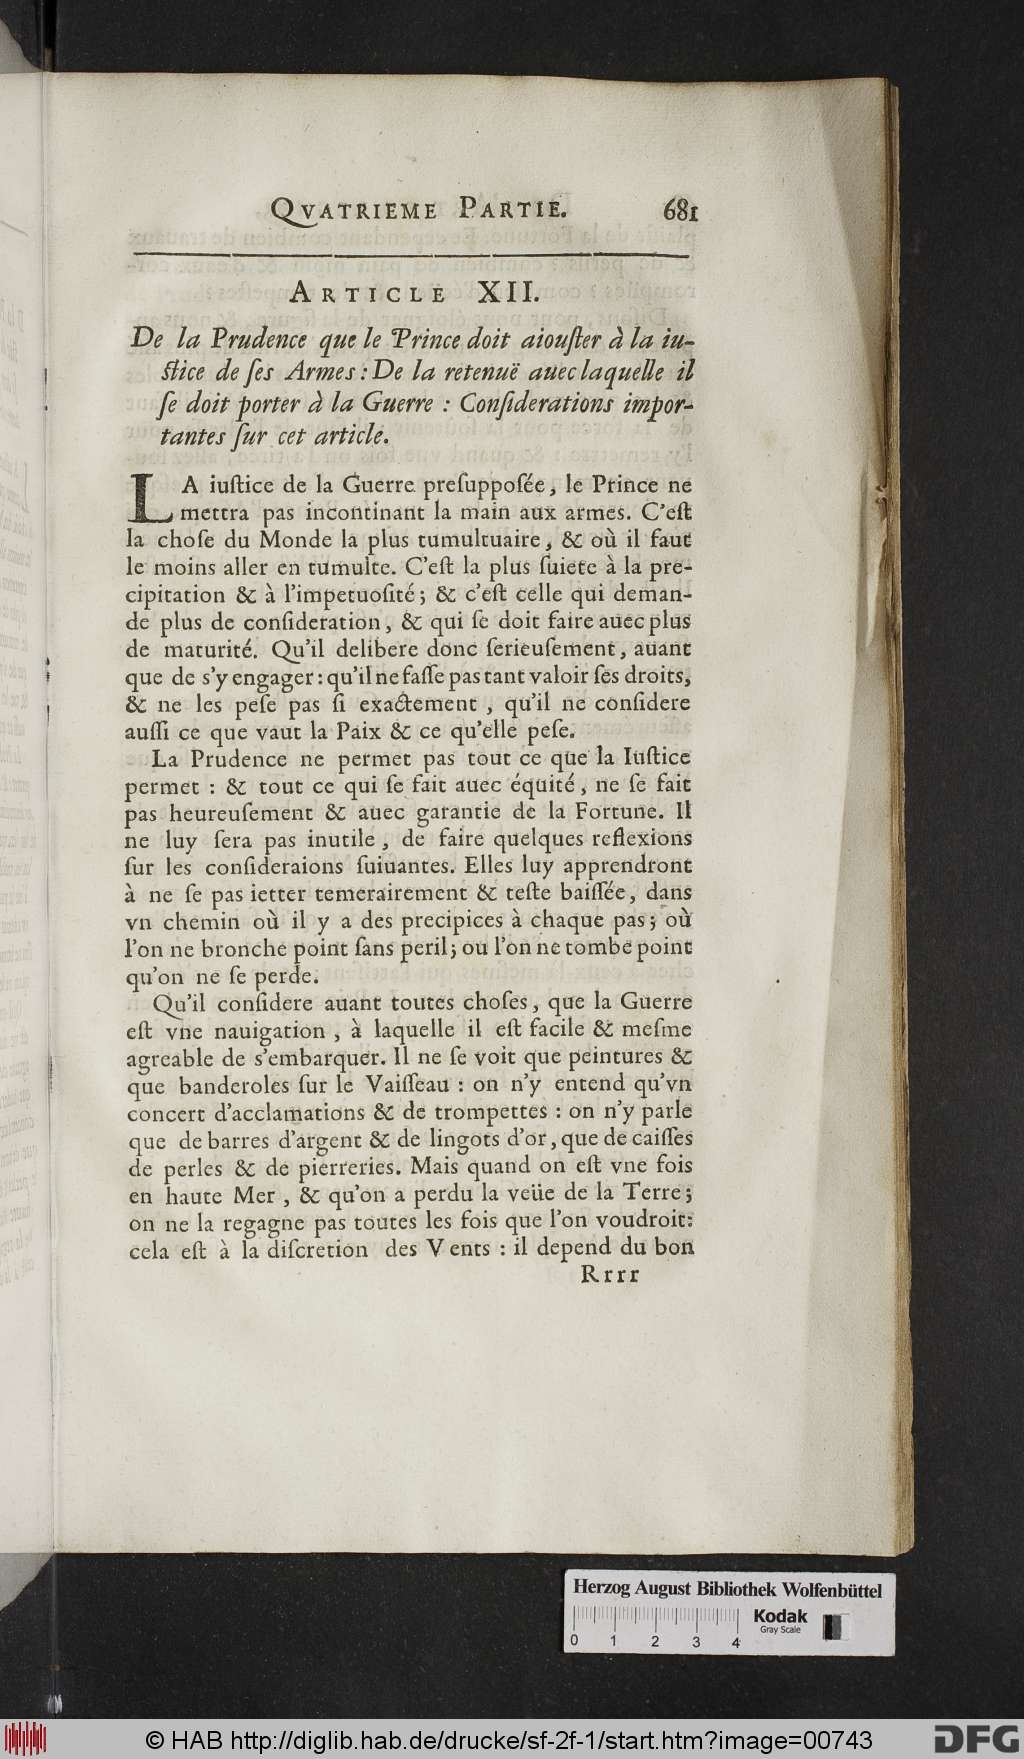 QVATRIEME PARTIE. 681
ARTICLE XII.
De la Prudence que le Prince doit aiouſter à la iu-
ſtice de ſes Armes : De la retenuë auec laquelle il
ſe doit porter à la Guerre : Conſiderations impor-
tantes ſur cet article.
LA iuſtice de la Guerre preſuppoſée, le Prince ne
mettra pas incontinant la main aux armes. C'eſt
la choſe du Monde la plus tumultuaire, & où il faut
le moins aller en tumulte. C'eſt la plus ſuiete à la pre-
cipitation & à l'impetuoſité; & c'eſt celle qui deman-
de plus de conſideration, & qui ſe doit faire auec plus
de maturité. Qu'il delibere donc ſerieuſement, auant
que de s'y engager : qu'il ne faſſe pas tant valoir ſes droits,
& ne les peſe pas ſi exactement, qu'il ne conſidere
auſſi ce que vaut la Paix & ce qu'elle peſe.
La Prudence ne permet pas tout ce que la Iuſtice
permet : & tout ce qui ſe fait auec équité, ne ſe fait
pas heureuſement & auec garantie de la Fortune. Il
ne luy ſera pas inutile, de faire quelques reflexions
ſur les conſideraions ſuiuantes. Elles luy apprendront
à ne ſe pas ietter temerairement & teſte baiſſée, dans
vn chemin où il y a des precipices à chaque pas; où
l'on ne bronche point ſans peril; ou l'on ne tombe point
qu'on ne ſe perde.
Qu'il conſidere auant toutes choſes, que la Guerre
eſt vne nauigation, à laquelle il eſt facile & meſme
agreable de s'embarquer. Il ne ſe voit que peintures &
que banderoles ſur le Vaiſſeau : on n'y entend qu'vn
concert d'acclamations & de trompettes : on n'y parle
que de barres d'argent & de lingots d'or, que de caiſſes
de perles & de pierreries. Mais quand on eſt vne fois
en haute Mer, & qu'on a perdu la veüe de la Terre;
on ne la regagne pas toutes les fois que l'on voudroit:
cela eſt à la diſcretion des Vents : il depend du bon
Rrrr
Herzog August Bibliothek Wolfenbüttel
Kodak
Gray Scale
0 1 2 3 4
© HAB http://diglib.hab.de/drucke/sf-2f-1/start.htm?image=00743
DFG